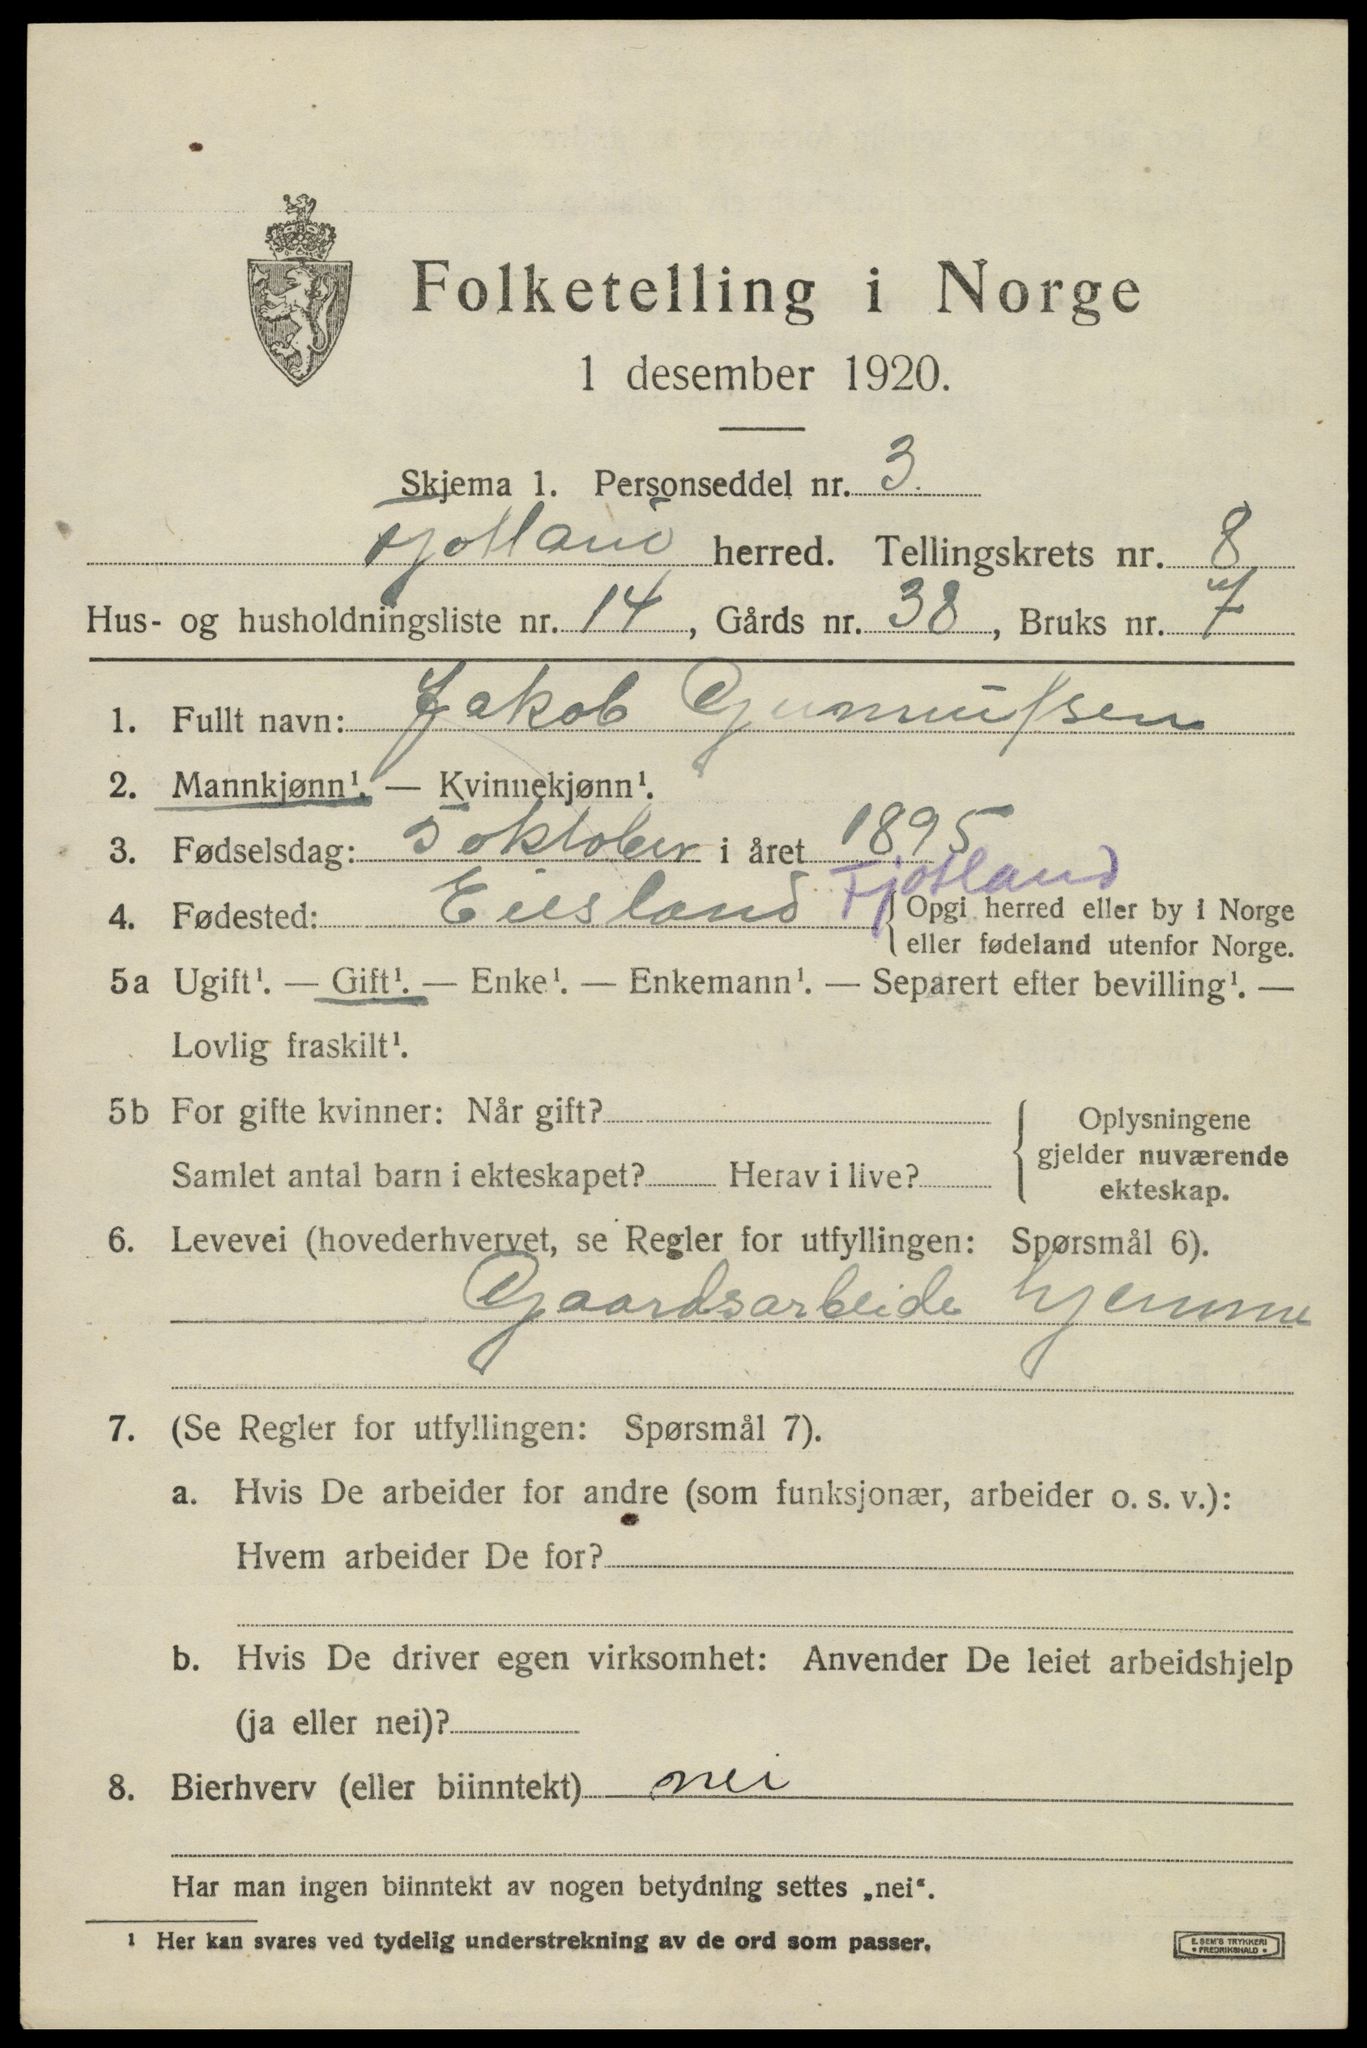 Folketelling i Norge
1 desember 1920.
Skjema 1. Personseddel nr. 3.
Fjotland herred. Tellingskrets nr. 8
Hus- og husholdningsliste nr. 14, Gårds nr. 38, Bruks nr. 7
1. Fullt navn: Jakob Gunnufsen
2. Mannkjønn¹. — Kvinnekjønn¹.
3. Fødselsdag: 5 oktober i året 1895
4. Fødested: Eiesland Fjotland { Opgi herred eller by i Norge
eller fødeland utenfor Norge.
5a Ugift¹. — Gift¹. — Enke¹. — Enkemann¹. — Separert efter bevilling¹. —
Lovlig fraskilt¹.
5b For gifte kvinner: Når gift?
Samlet antal barn i ekteskapet? Herav i live?
Oplysningene
gjelder nuværende
ekteskap.
6. Levevei (hovederhvervet, se Regler for utfyllingen: Spørsmål 6).
Gaardsarbeide hjemme
7. (Se Regler for utfyllingen: Spørsmål 7).
a. Hvis De arbeider for andre (som funksjonær, arbeider o. s. v.):
Hvem arbeider De for?
b. Hvis De driver egen virksomhet: Anvender De leiet arbeidshjelp
(ja eller nei)?
8. Bierhverv (eller biinntekt) nei
Har man ingen biinntekt av nogen betydning settes „nei“.
¹ Her kan svares ved tydelig understrekning av de ord som passer.
E. SEM'S TRYKKERI
• FREDRIKSHALD •